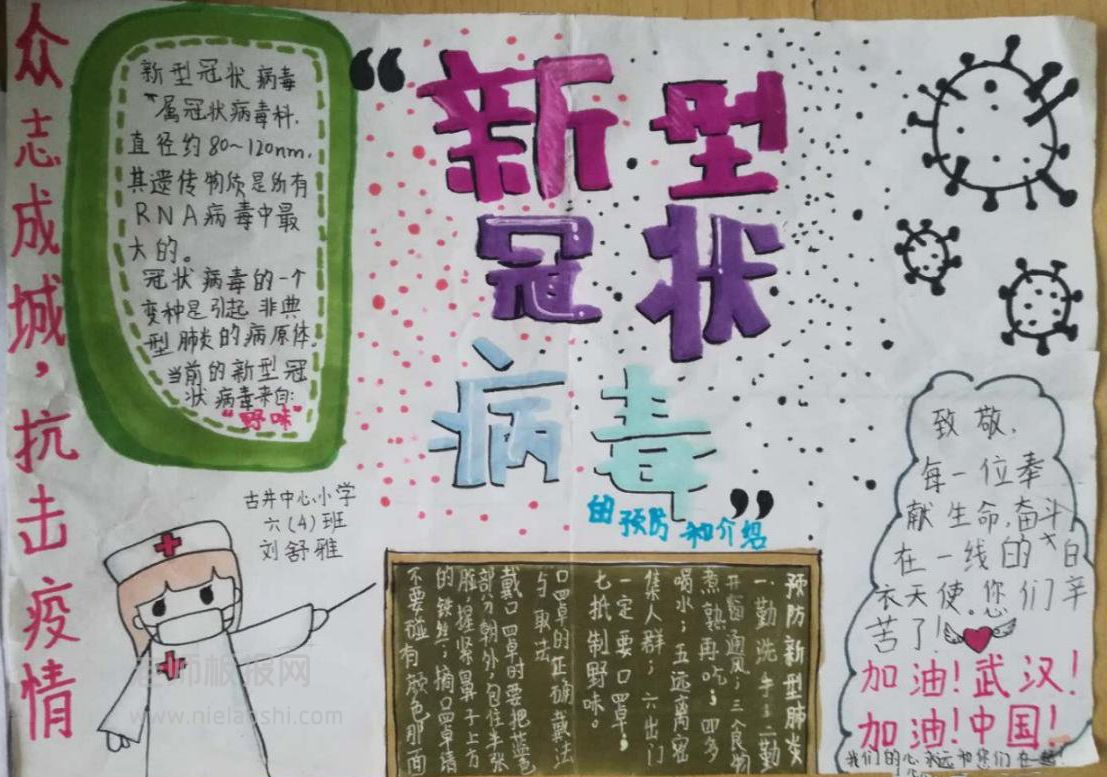 众志成城，抗击疫情
新型冠状病毒
属冠状病毒科，
直径约80~120nm.
其遗传物质是所有
RNA病毒中最
大的。
冠状病毒的一个
变种是引起非典
型肺炎的病原体.
当前的新型冠
状病毒来自:
“野味”
“新型
冠状
病毒”
的预防和介绍
古井中心小学
六(4)班
刘舒雅
预防新型肺炎
一.勤洗手;二勤
开窗通风;三食物
煮熟再吃;四多
喝水;五远离密
集人群;六出门
一定要口罩;
七抵制野味。
口罩的正确戴法
与取法
戴口罩时要把蓝色
部分朝外,包住半张
脸,捏紧鼻子上方
的铁丝;摘口罩请
不要碰有颜色那面
致敬,
每一位奉
献生命,奋斗
在一线的白
衣天使。您们辛
苦了!
加油!武汉!
加油!中国!
我们的心永远和您们在一起!
老师板报网
www.nielaoshi.com